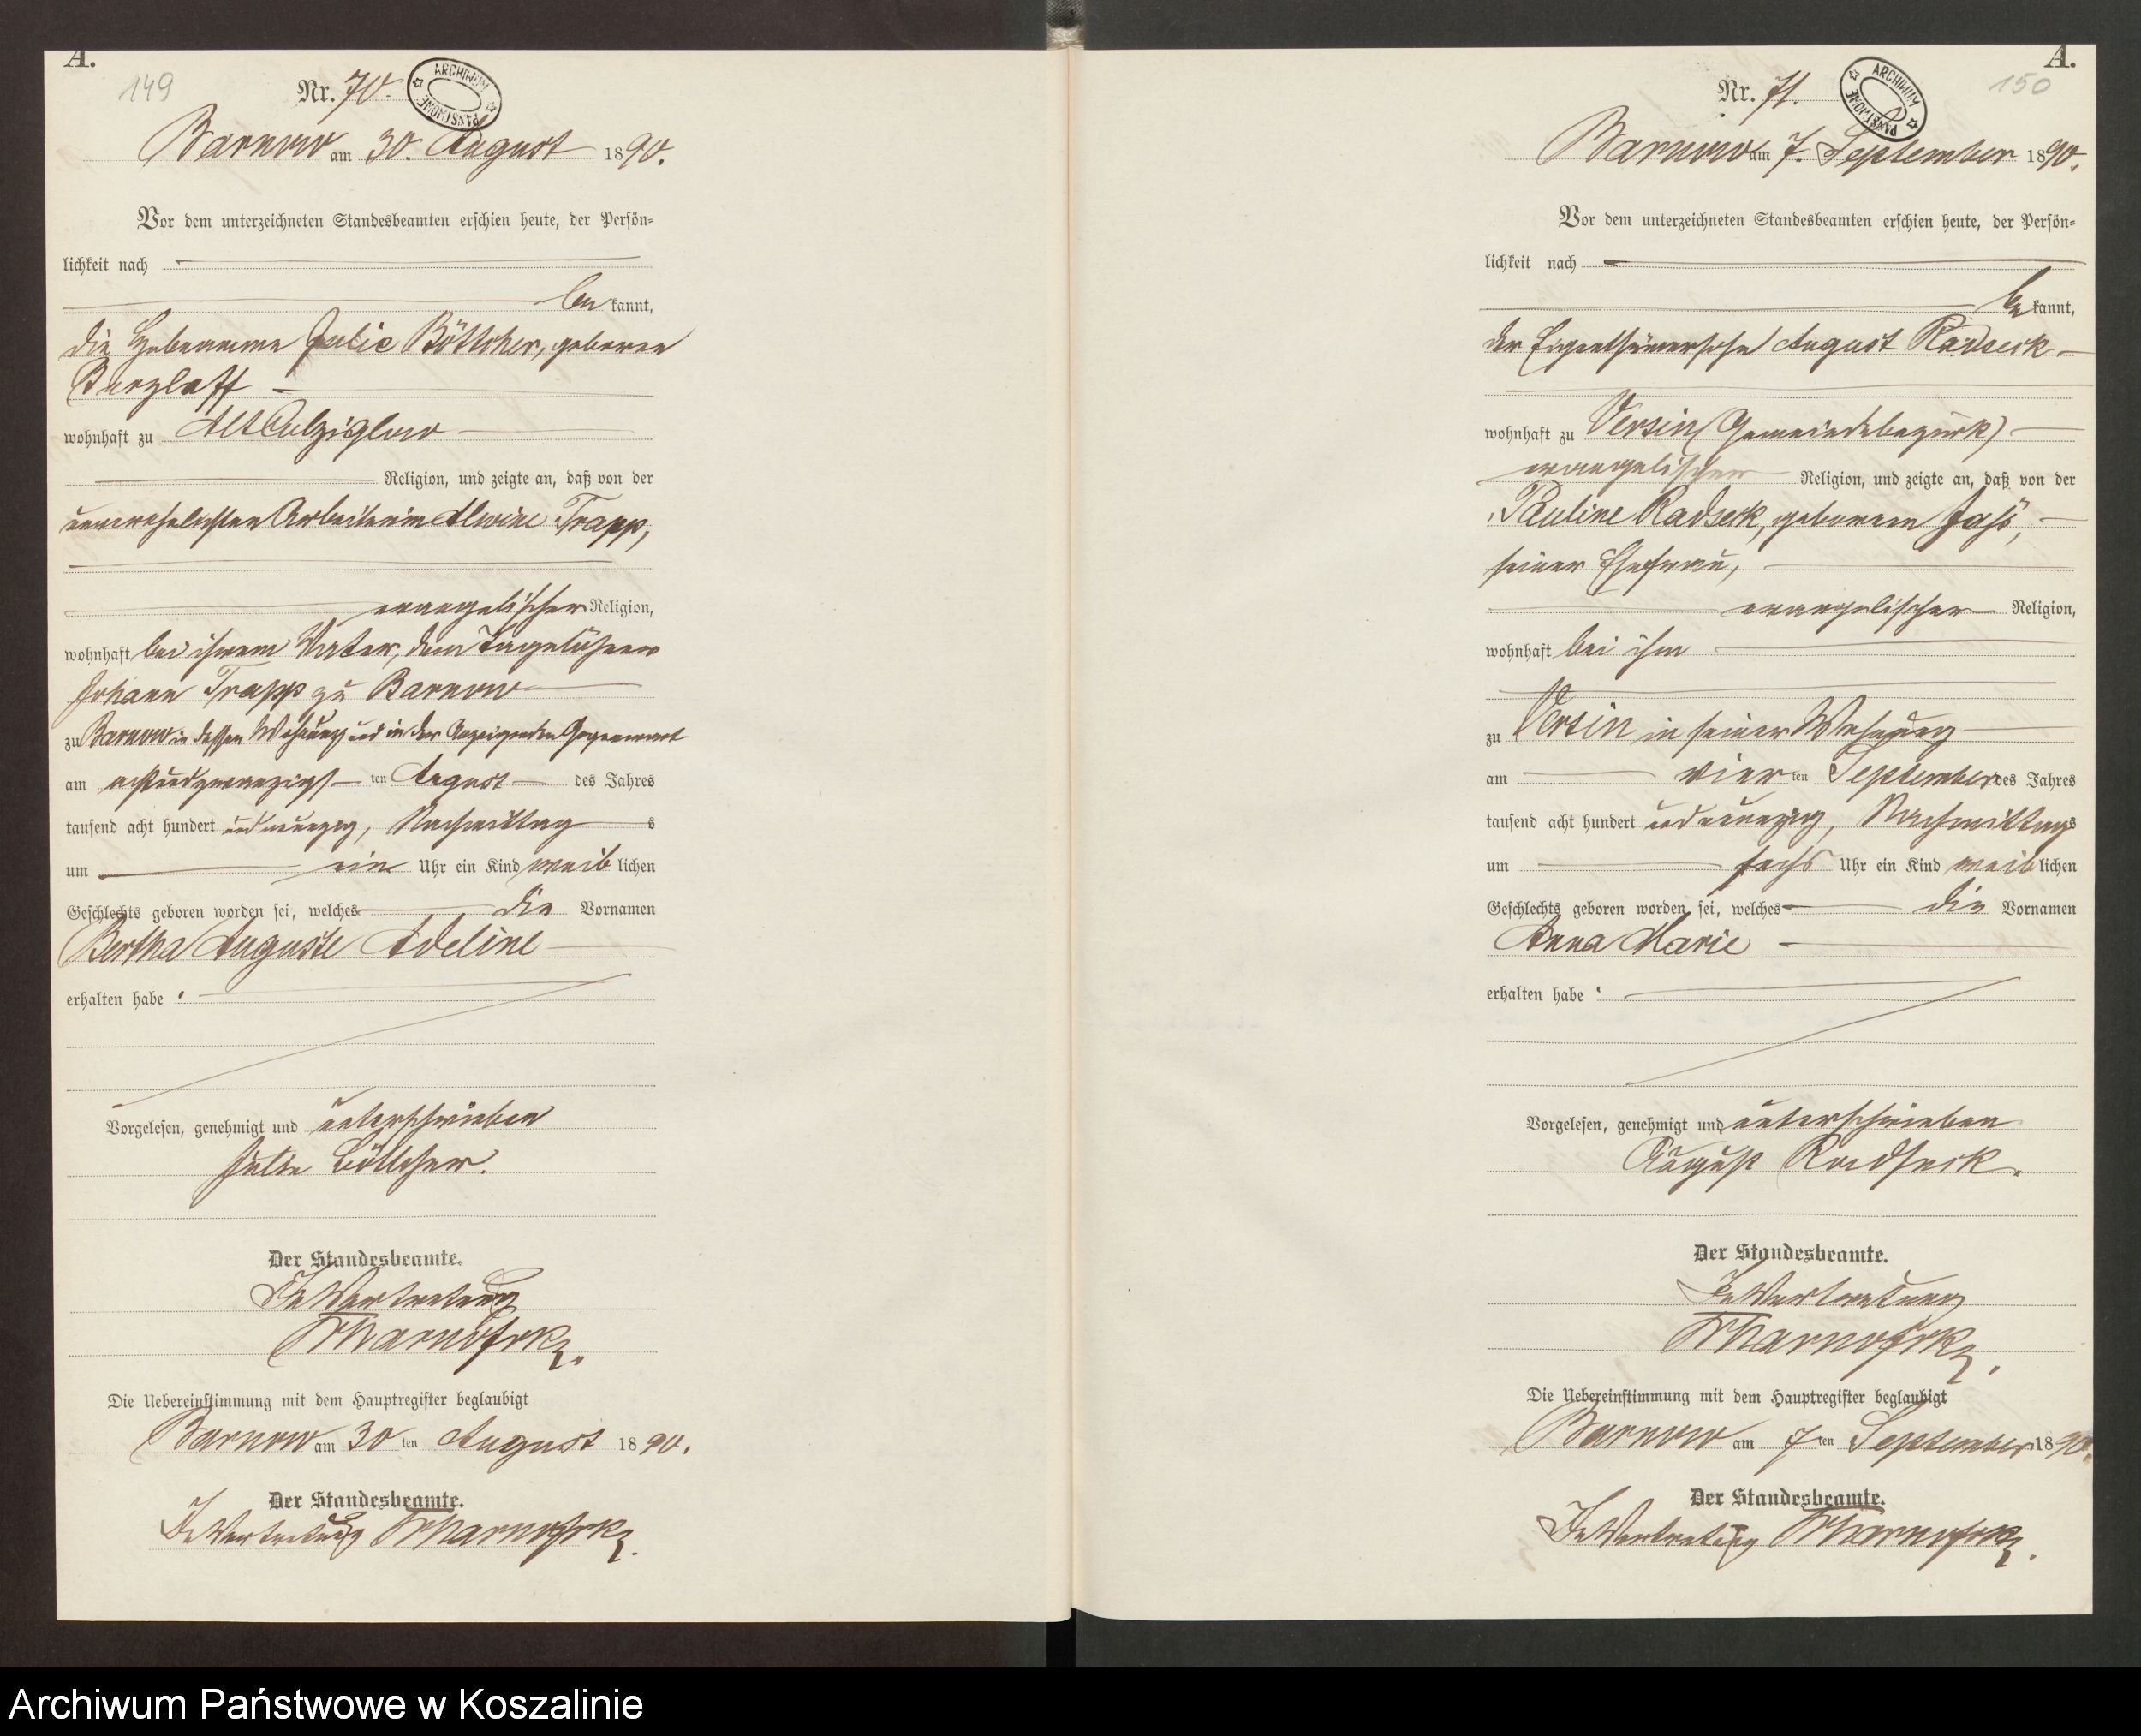 A.
149
Nr. 70.
ARCHIWUM PAŃSTWOWE
Barnow am 30. August 1890.
Vor dem unterzeichneten Standesbeamten erschien heute, der Persön-
lichkeit nach
be kannt,
die Hebeamme Julie Böttcher, geborene
Purzlaff
wohnhaft zu Alt Colziglow
Religion, und zeigte an, daß von der
unverehelichten Arbeiterin Alwine Trapp,
evangelischer Religion,
wohnhaft bei ihrem Vater, dem Tagelöhner
Johann Trapp zu Barnow
zu Barnow in dessen Wohnung und in der Anzeigenden Gegenwart
am achtundzwanzigsten August des Jahres
tausend acht hundert undneunzig, Nachmittags
um ein Uhr ein Kind weiblichen
Geschlechts geboren worden sei, welches die Vornamen
Bertha Auguste Adeline
erhalten habe.
Vorgelesen, genehmigt und unterschrieben
Julie Böttcher.
Der Standesbeamte.
In Vertretung
Die Uebereinstimmung mit dem Hauptregister beglaubigt
Barnow am 30ten August 1890.
Der Standesbeamte.
In Vertretung
A.
150
Nr. 71.
ARCHIWUM PAŃSTWOWE
Barnow am 7. September 1890.
Vor dem unterzeichneten Standesbeamten erschien heute, der Persön-
lichkeit nach
be kannt,
der Eigenthümersohn August Radseck
wohnhaft zu Versin (Gemeindebezirk)
evangelischer Religion, und zeigte an, daß von der
Pauline Radseck, geborenen Jaß,
seiner Ehefrau,
evangelischer Religion,
wohnhaft bei ihm
zu Versin in seiner Wohnung
am vierten September des Jahres
tausend acht hundert undneunzig, Nachmittags
um sechs Uhr ein Kind weiblichen
Geschlechts geboren worden sei, welches die Vornamen
Anna Marie
erhalten habe.
Vorgelesen, genehmigt und unterschrieben
August Radseck.
Der Standesbeamte.
In Vertretung
Die Uebereinstimmung mit dem Hauptregister beglaubigt
Barnow am 7ten September 1890.
Der Standesbeamte.
In Vertretung
Archiwum Państwowe w Koszalinie